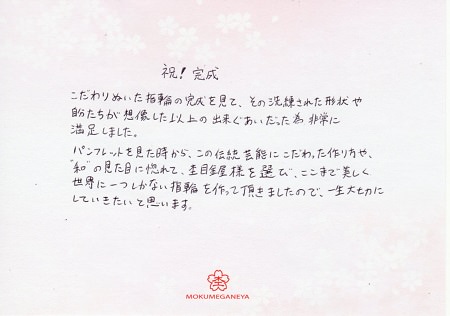 祝！完成
こだわりぬいた指輪の完成を見て、その洗練された形状や
自分たちが想像した以上の出来ぐあいだった為 非常に
満足しました。
パンフレットを見た時から、この伝統芸能にこだわった作り方や、
"和"の見た目に惚れて、杢目金屋様を選び、ここまで美しく
世界に一つしかない指輪を作って頂きましたので、一生大切に
していきたいと思います。
杢
MOKUMEGANEYA